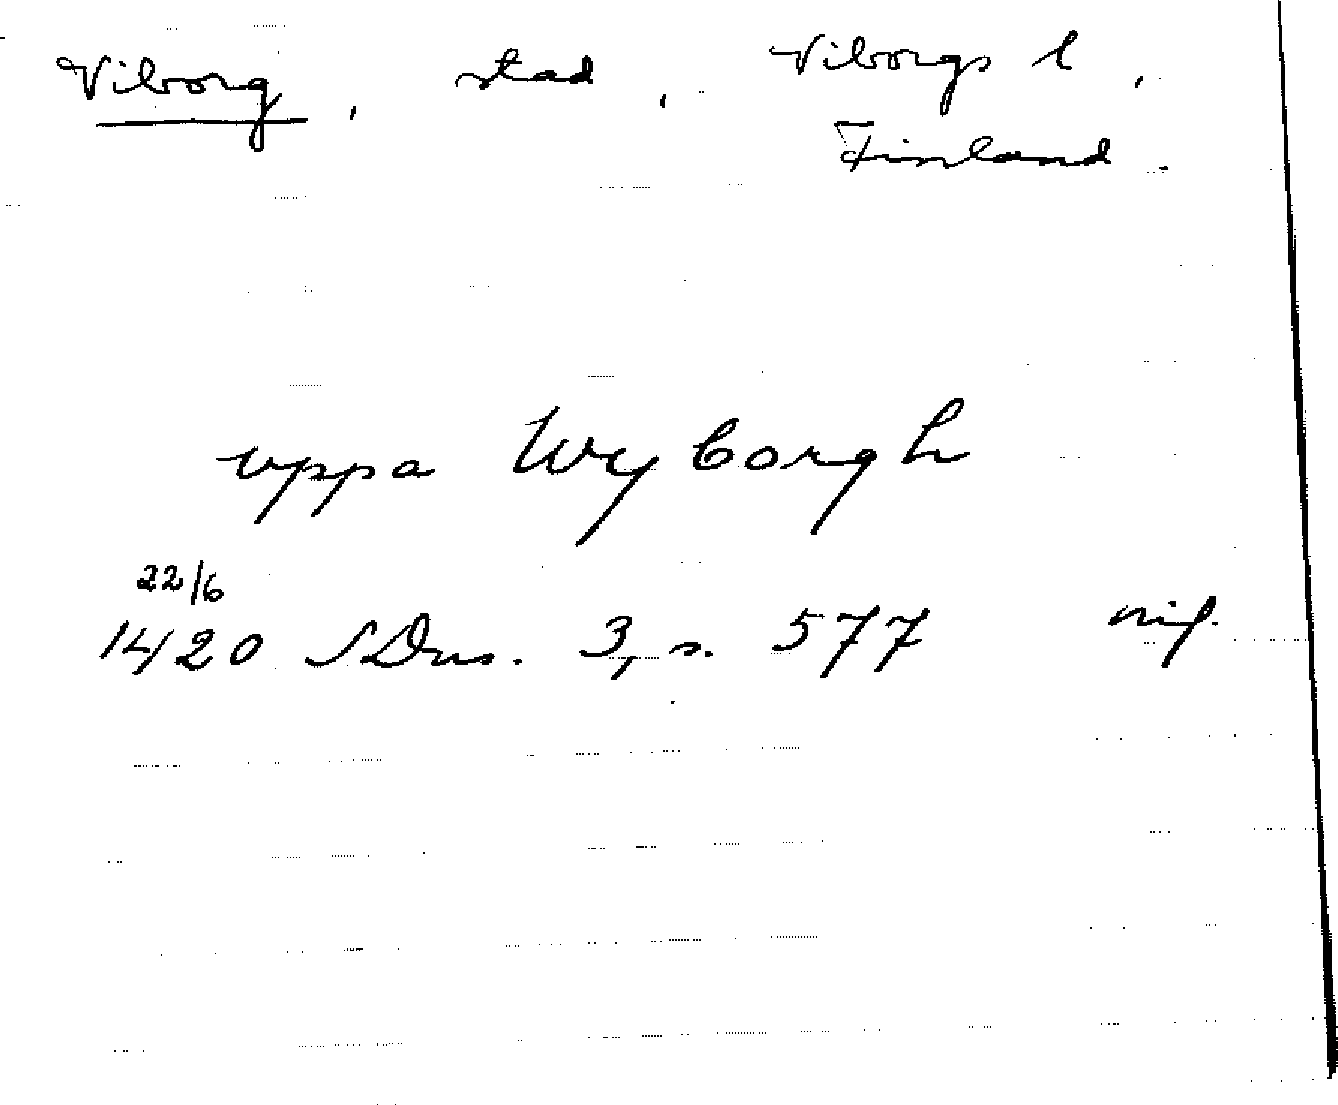 Viborg, stad, Viborgs l,
Finland.
vppa Wyborgh
22/6
1420 SDns. 3, s. 577